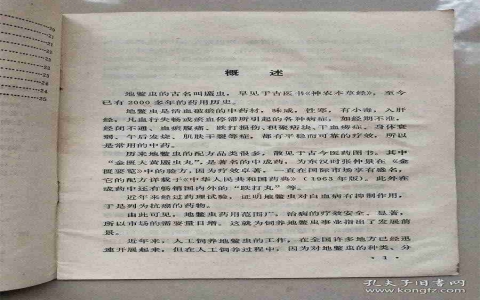 概 述
地鳖虫的古名叫䗪虫，早见于古医书《神农本草经》，至今
已有2000多年的药用历史。
地鳖虫是活血破瘀的中药材，味咸，性寒，有小毒，入肝
经，凡血行失畅或瘀血停滞所引起的各种病症，如经期不准，
经闭不通、血瘀腹痛、跌打损伤、积聚痞块、干血痨症、身体衰
弱、午后发烧、肌肤干瘦等症，都有平稳而可靠的疗效，所以
是常用的中药。
历来地鳖虫的配方品类很多，散见于古今医药图书，其中
“金匮大黄䗪虫丸”，是著名的中成药，为东汉时张仲景在《金
匮要览》中的验方，因为疗效卓著，一直在国际市场享有盛名，
它的配方详载于《中华人民共和国药典》（1963年版）。此外在
成药中还有畅销国内外的“跌打丸”等。
近年来经过药理试验，证明地鳖虫对白血病有抑制作用，
于是列为抗癌的药物。
由此可见，地鳖虫药用范围广，治病的疗效安全、显著，
所以市场的需要量日增，这就为饲养地鳖虫事业指出了发展前
景。
近年来，人工饲养地鳖虫的工作，在全国许多地方已经迅
速开展起来，但在人工饲养过程中，因为对地鳖虫的种类、分
· 1 ·
20
21
21
23
24
24
25
孔夫子旧书网
www.kongfz.com